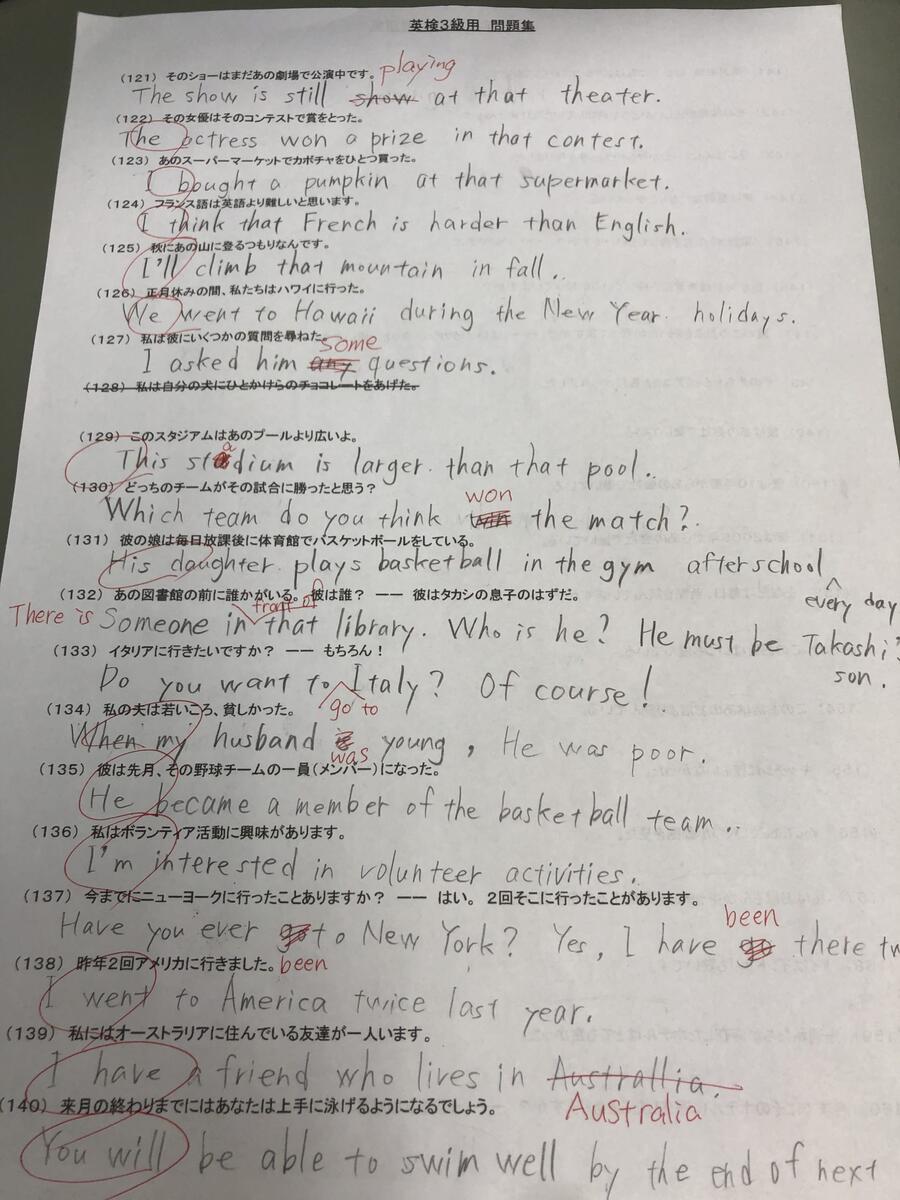 英検3級用 問題集
(121) そのショーはまだあの劇場で公演中です。 playing
The show is still show at that theater.
(122) その女優はそのコンテストで賞をとった。
The actress won a prize in that contest.
(123) あのスーパーマーケットでカボチャをひとつ買った。
I bought a pumpkin at that supermarket.
(124) フランス語は英語より難しいと思います。
I think that French is harder than English.
(125) 秋にあの山に登るつもりなんです。
I'll climb that mountain in fall.
(126) 正月休みの間、私たちはハワイに行った。
We went to Hawaii during the New Year holidays.
(127) 私は彼にいくつかの質問を尋ねた。 some
I asked him any questions.
(128) 私は自分の犬にひとかけらのチョコレートをあげた。
(129) このスタジアムはあのプールより広いよ。
a
This stadium is larger than that pool.
(130) どっちのチームがその試合に勝ったと思う?
won
Which team do you think win the match?
(131) 彼の娘は毎日放課後に体育館でバスケットボールをしている。
His daughter plays basketball in the gym after school
every day
(132) あの図書館の前に誰かがいる。 彼は誰? ―― 彼はタカシの息子のはずだ。
front of
There is Someone in that library. Who is he? He must be Takashi's
son.
(133) イタリアに行きたいですか? ―― もちろん!
Do you want to Italy? Of course!
go to
(134) 私の夫は若いころ、貧しかった。
When my husband young, He was poor.
was
(135) 彼は先月、その野球チームの一員(メンバー)になった。
He became a member of the basketball team.
(136) 私はボランティア活動に興味があります。
I'm interested in volunteer activities.
(137) 今までにニューヨークに行ったことありますか? ―― はい。 2回そこに行ったことがあります。
been
Have you ever go to New York? Yes, I have go there tw
been
(138) 昨年2回アメリカに行きました。
I went to America twice last year.
(139) 私にはオーストラリアに住んでいる友達が一人います。
I have a friend who lives in Australlia.
Australia
(140) 来月の終わりまでにはあなたは上手に泳げるようになるでしょう。
You will be able to swim well by the end of next